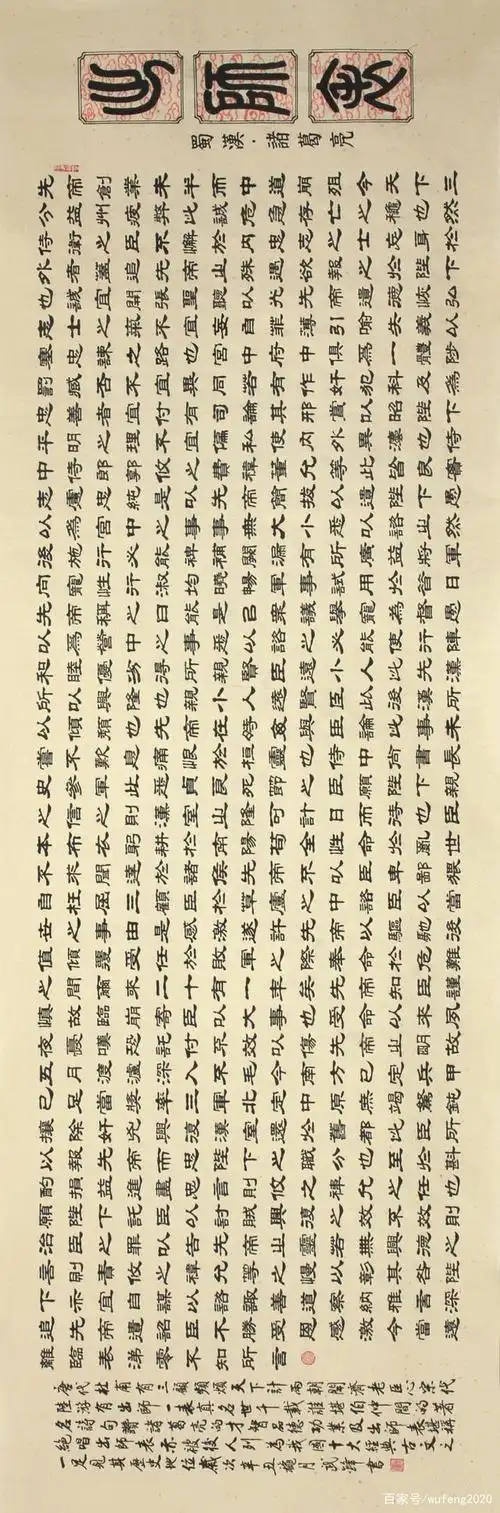 出師表
蜀漢·諸葛亮
先帝創業未半而中道崩殂今天下三
分益州疲弊此誠危急存亡之秋也然
侍衛之臣不懈於內忠志之士忘身於
外者蓋追先帝之殊遇欲報之於陛下
也誠宜開張聖聽以光先帝遺德恢弘
志士之氣不宜妄自菲薄引喻失義以
塞忠諫之路也宮中府中俱為一體陟
罰臧否不宜異同若有作奸犯科及為
忠善者宜付有司論其刑賞以昭陛下
平明之理不宜偏私使內外異法也侍
中侍郎郭攸之費禕董允等此皆良實
志慮忠純是以先帝簡拔以遺陛下愚
以為宮中之事事無大小悉以諮之然
後施行必能裨補闕漏有所廣益將軍
向寵性行淑均曉暢軍事試用於昔日
先帝稱之曰能是以眾議舉寵為督愚
以為營中之事悉以諮之必能使行陣
和睦優劣得所親賢臣遠小人此先漢
所以興隆也親小人遠賢臣此後漢所
以傾頹也先帝在時每與臣論此事未
嘗不歎息痛恨於桓靈也侍中尚書長
史參軍此悉貞良死節之臣願陛下親
之信之則漢室之隆可計日而待也臣
本布衣躬耕於南陽苟全性命於亂世
不求聞達於諸侯先帝不以臣卑鄙猥
自枉屈三顧臣於草廬之中諮臣以當
世之事由是感激遂許先帝以驅馳後
值傾覆受任於敗軍之際奉命於危難
之間爾來二十有一年矣先帝知臣謹
慎故臨崩寄臣以大事也受命以來夙
夜憂嘆恐託付不效以傷先帝之明故
五月渡瀘深入不毛今南方已定兵甲
已足當獎率三軍北定中原庶竭駑鈍
攘除奸凶興復漢室還於舊都此臣所
以報先帝而忠陛下之職分也至於斟
酌損益進盡忠言則攸之禕允之任也
願陛下託臣以討賊興復之效不效則
治臣之罪以告先帝之靈若無興德之
言則責攸之禕允等之慢以彰其咎陛
下亦宜自謀以諮諏善道察納雅言深
追先帝遺詔臣不勝受恩感激今當遠
難臨表涕零不知所言
唐代杜甫有三顧頻煩天下計兩朝開濟老臣心宋代
陸游有出師一表真名世千載誰堪伯仲間的著
名詩句讚諸葛亮的才智品德功業出師表堪稱
絕唱出師表亦被後人列為我國十大經典古文之
一足見其歷史地位歲次辛丑月武書
百家号/wufeng2020